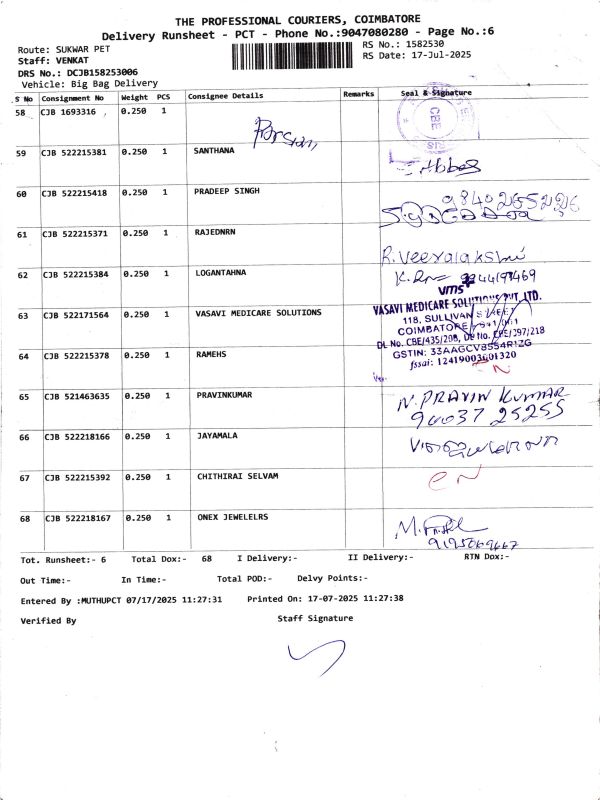 THE PROFESSIONAL COURIERS, COIMBATORE
Delivery Runsheet - PCT - Phone No.:9047080280 - Page No.:6
Route: SUKWAR PET
RS No.: 1582530
Staff: VENKAT
RS Date: 17-Jul-2025
DRS No.: DCJB158253006
Vehicle: Big Bag Delivery
S No Consignment No Weight PCS Consignee Details Remarks Seal & Signature
58 CJB 1693316 0.250 1
CBE
59 CJB 522215381 0.250 1 SANTHANA
Abbas
60 CJB 522215418 0.250 1 PRADEEP SINGH
61 CJB 522215371 0.250 1 RAJEDNRN
R. Veeralakshmi
62 CJB 522215384 0.250 1 LOGANTAHNA
vms
63 CJB 522171564 0.250 1 VASAVI MEDICARE SOLUTIONS
VASAVI MEDICARE SOLUTIONS PVT. LTD.
118, SULLIVAN STREET
COIMBATORE
64 CJB 522215378 0.250 1 RAMEHS
GSTIN: 33AAGCV8554R1ZG
fssai: 12419003001320
65 CJB 521463635 0.250 1 PRAVINKUMAR
N. PRAVIN KUMAR
94037 25255
66 CJB 522218166 0.250 1 JAYAMALA
67 CJB 522215392 0.250 1 CHITHIRAI SELVAM
CN
68 CJB 522218167 0.250 1 ONEX JEWELELRS
Tot. Runsheet:- 6 Total Dox:- 68 I Delivery:- II Delivery:- RTN Dox:-
Out Time:- In Time:- Total POD:- Delvy Points:-
Entered By :MUTHUPCT 07/17/2025 11:27:31 Printed On: 17-07-2025 11:27:38
Verified By Staff Signature